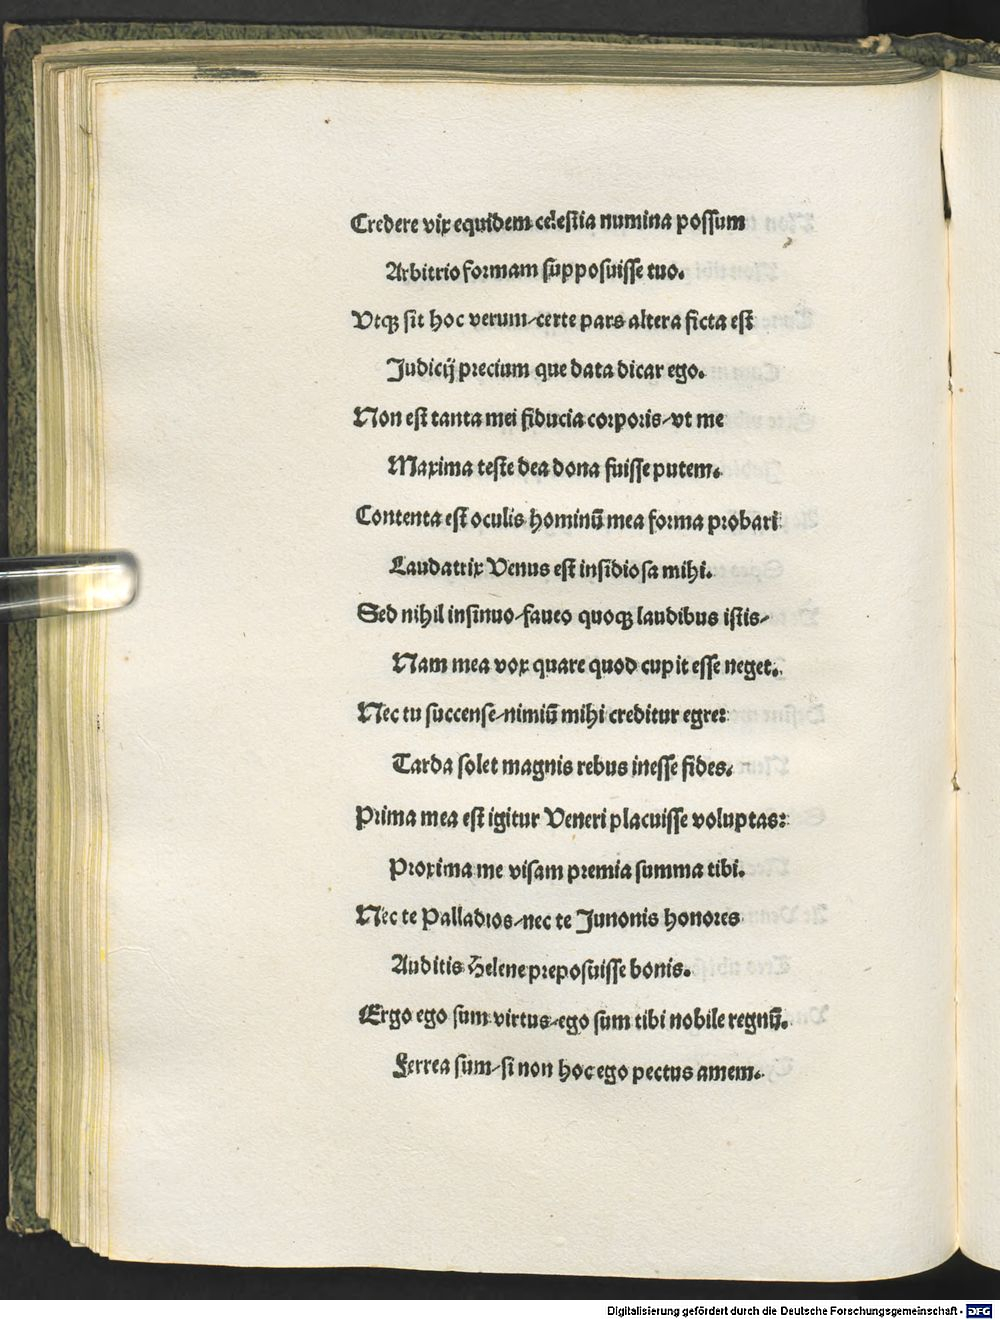 Credere vix equidem celestia numina possum
Arbitrio formam supposuisse tuo.
Utqȝ sit hoc verum/certe pars altera ficta est
Judicij precium que data dicar ego.
Non est tanta mei fiducia corporis/vt me
Maxima teste dea dona fuisse putem.
Contenta est oculis hominū mea forma probari
Laudatrix Venus est insidiosa mihi.
Sed nihil infinuo/faueo quoqȝ laudibus istis/
Nam mea vox quare quod cupit esse neget.
Nec tu succense/nimiū mihi creditur egre:
Tarda solet magnis rebus inesse fides.
Prima mea est igitur Veneri placuisse voluptas:
Proxima me visam premia summa tibi.
Nec te Palladios/nec te Junonis honores
Auditis Helene preposuisse bonis.
Ergo ego sum virtus/ego sum tibi nobile regnū.
Ferrea sum/si non hoc ego pectus amem.
Digitalisierung gefördert durch die Deutsche Forschungsgemeinschaft - DFG